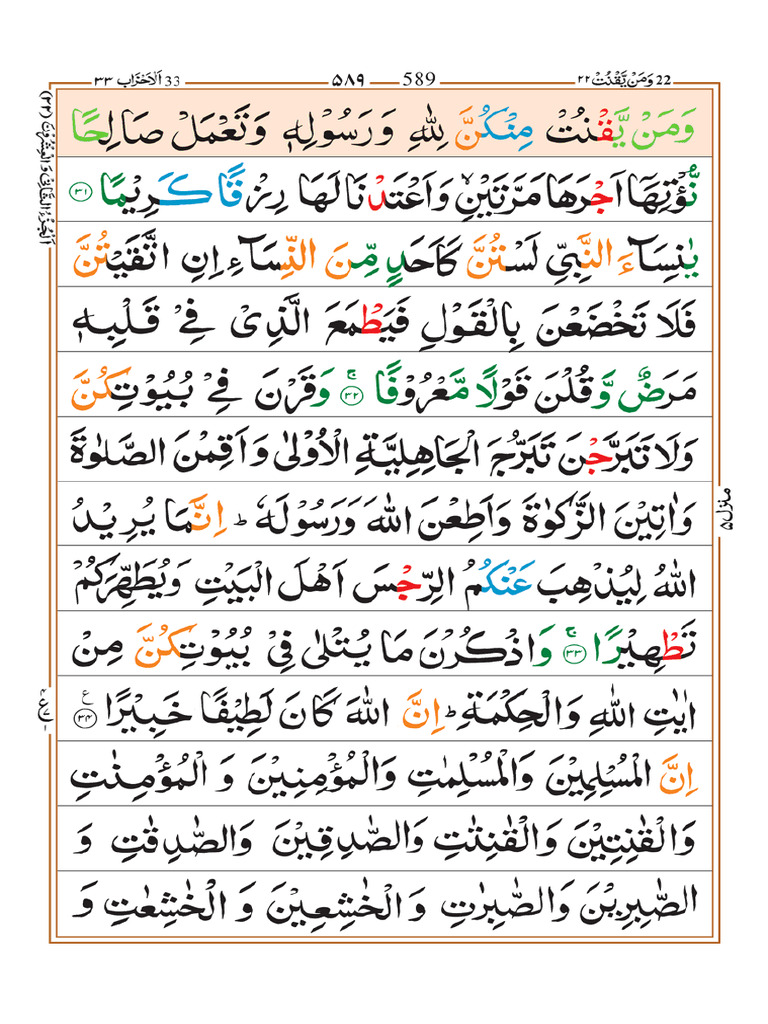 22 وَمَنْ يَّقْنُتْ ۲۲ 589 ۵۸۹ 33 اَلْاَحْزَاب ۳۳
اَلْجُزْءُ الثَّانِیْ وَ الْعِشْرُوْنَ (۲۲)
وَمَنْ يَّقْنُتْ مِنْكُنَّ لِلّٰهِ وَ رَسُوْلِهٖ وَ تَعْمَلْ صَالِحًا
نُّؤْتِهَاۤ اَجْرَهَا مَرَّتَيْنِ وَاَعْتَدْنَا لَهَا رِزْقًا كَرِيْمًا ۳۱
يٰنِسَآءَ النَّبِيِّ لَسْتُنَّ كَاَحَدٍ مِّنَ النِّسَآءِ اِنِ اتَّقَيْتُنَّ
فَلَا تَخْضَعْنَ بِالْقَوْلِ فَيَطْمَعَ الَّذِىْ فِىْ قَلْبِهٖ
مَرَضٌ وَّ قُلْنَ قَوْلًا مَّعْرُوْفًا ۳۲ وَ قَرْنَ فِىْ بُيُوْتِكُنَّ
وَلَا تَبَرَّجْنَ تَبَرُّجَ الْجَاهِلِيَّةِ الْاُوْلٰى وَ اَقِمْنَ الصَّلٰوةَ
وَاٰتِيْنَ الزَّكٰوةَ وَ اَطِعْنَ اللّٰهَ وَرَسُوْلَهٗ ؕ اِنَّمَا يُرِيْدُ
اللّٰهُ لِيُذْهِبَ عَنْكُمُ الرِّجْسَ اَهْلَ الْبَيْتِ وَيُطَهِّرَكُمْ
تَطْهِيْرًا ۳۳ وَ اذْكُرْنَ مَا يُتْلٰى فِىْ بُيُوْتِكُنَّ مِنْ
اٰيٰتِ اللّٰهِ وَالْحِكْمَةِ ؕ اِنَّ اللّٰهَ كَانَ لَطِيْفًا خَبِيْرًا ۳۴ ع
اِنَّ الْمُسْلِمِيْنَ وَالْمُسْلِمٰتِ وَالْمُؤْمِنِيْنَ وَ الْمُؤْمِنٰتِ
وَالْقٰنِتِيْنَ وَالْقٰنِتٰتِ وَالصّٰدِقِيْنَ وَالصّٰدِقٰتِ وَ
الصّٰبِرِيْنَ وَالصّٰبِرٰتِ وَ الْخٰشِعِيْنَ وَ الْخٰشِعٰتِ وَ
منزل ۵